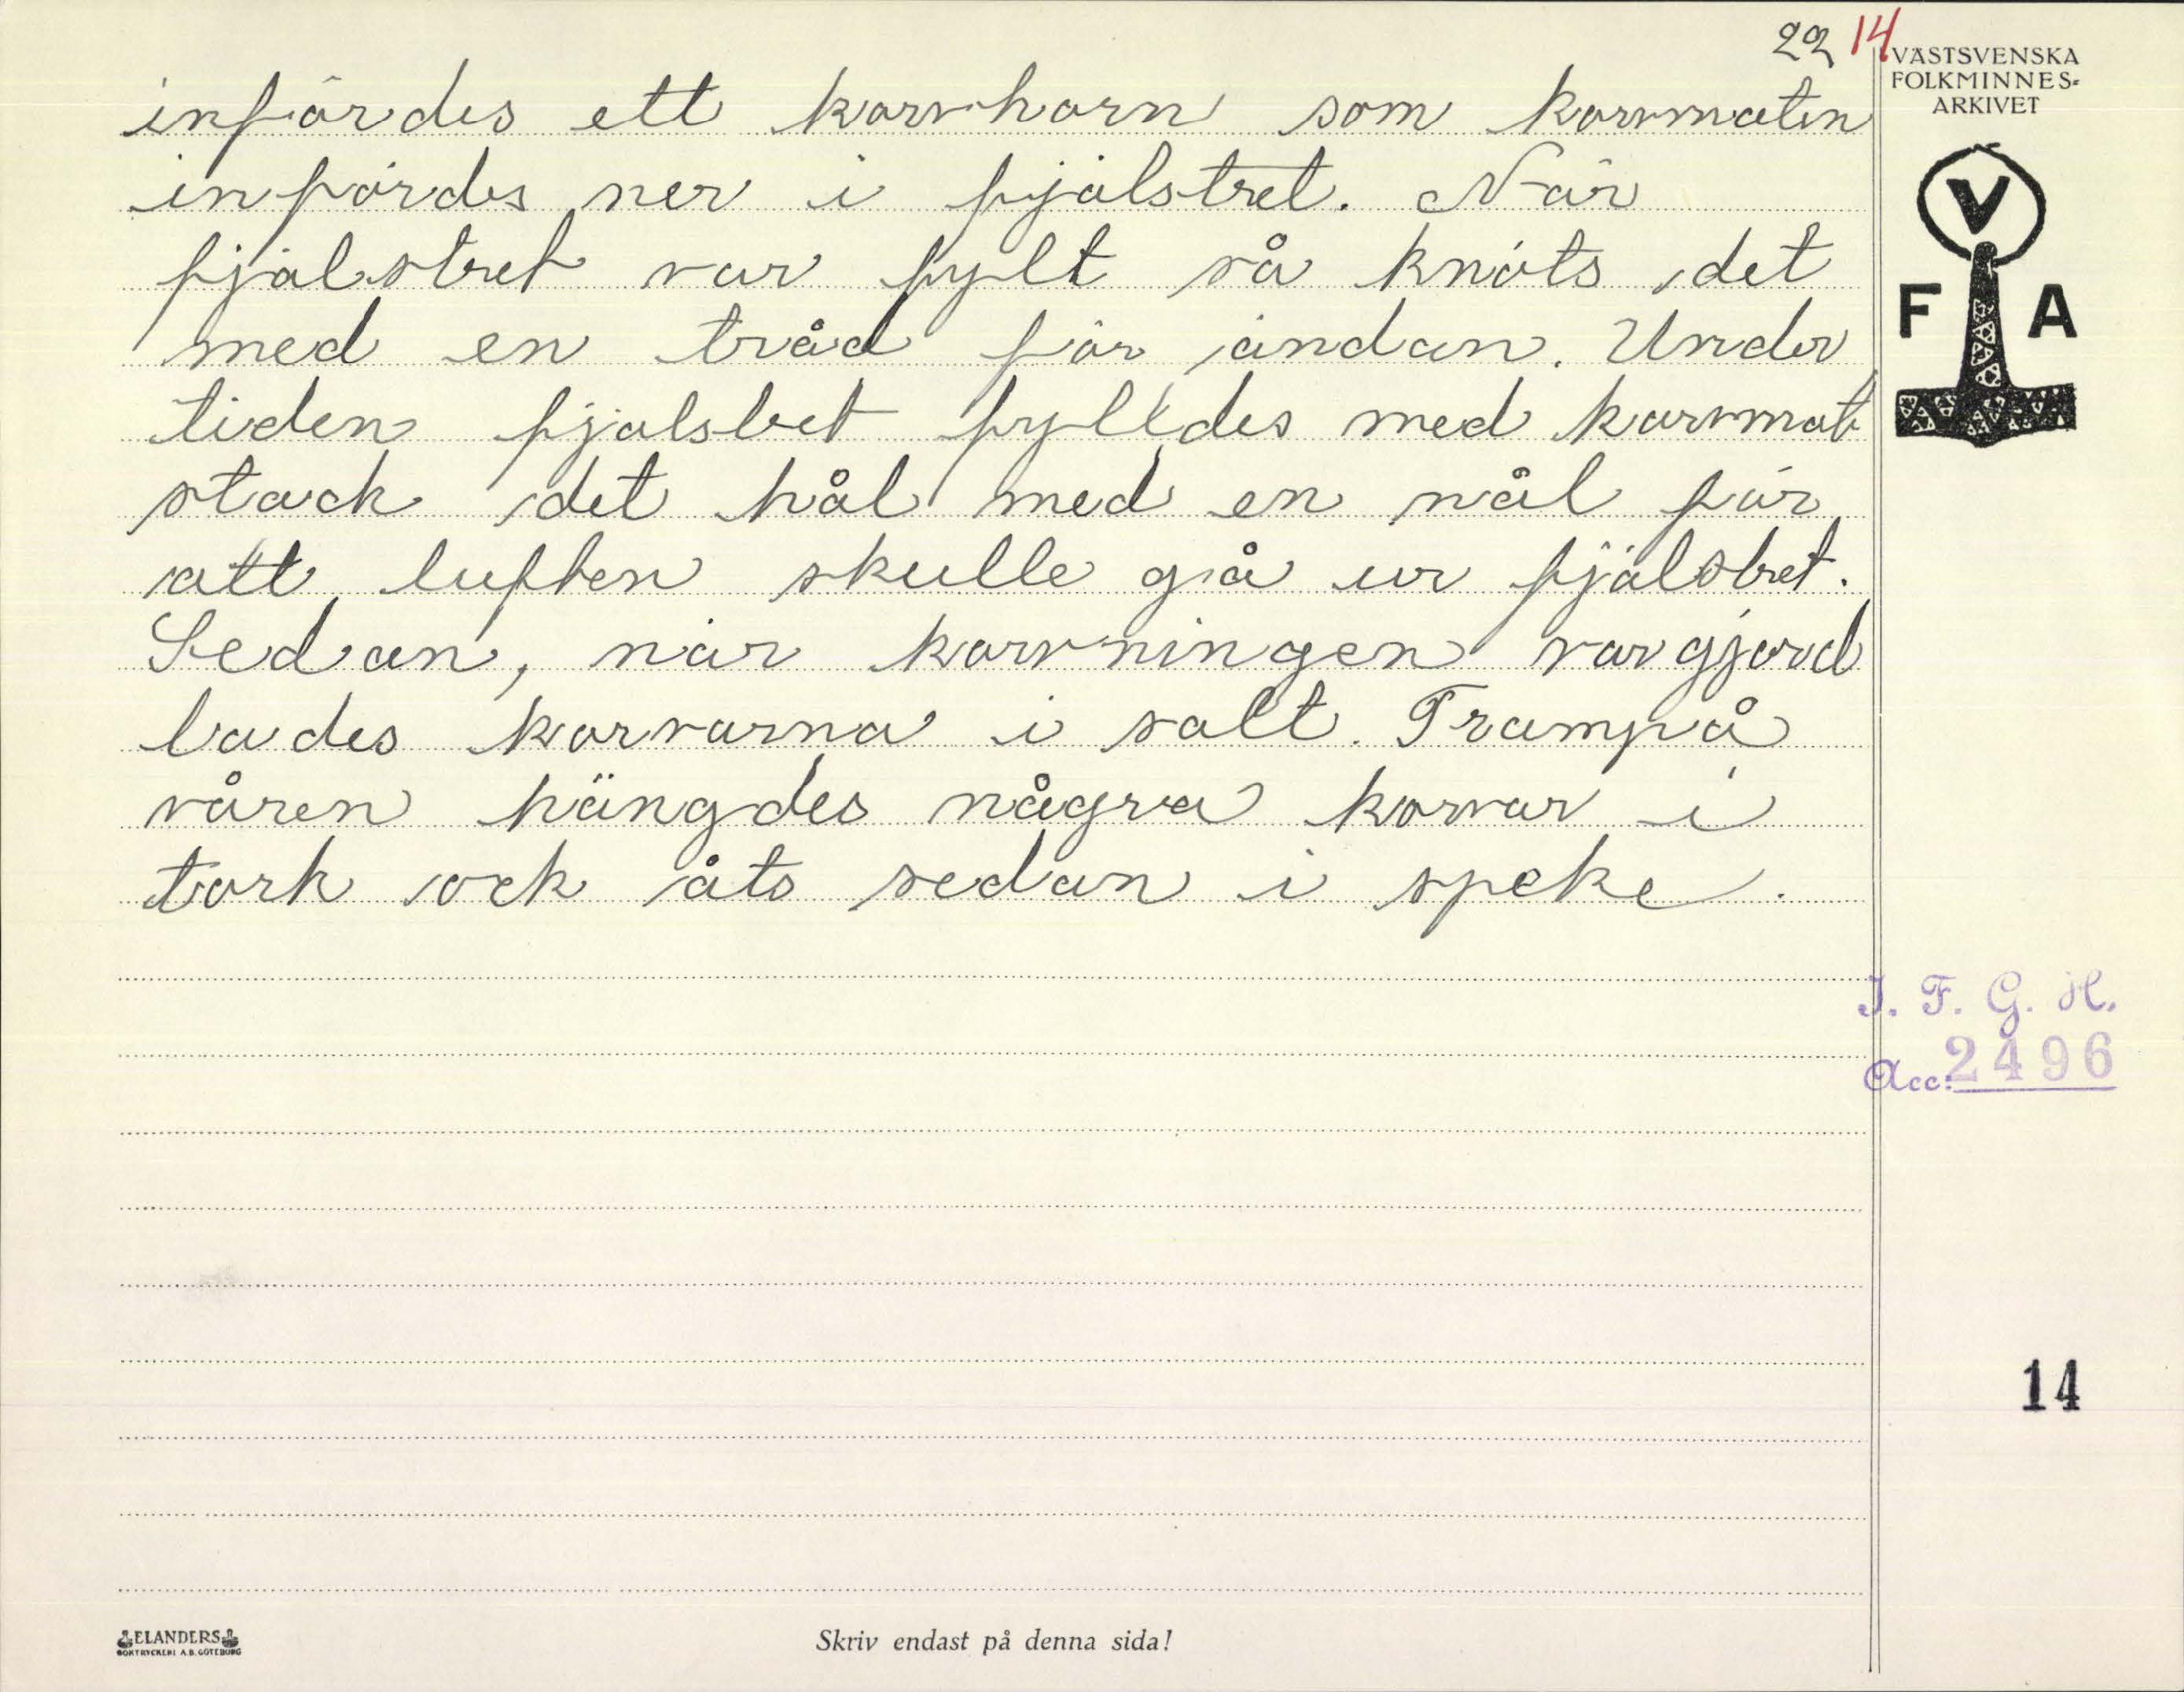 22 14
VÄSTSVENSKA
FOLKMINNES-
ARKIVET
V
F A
infördes ett korvhorn som korvmaten
infördes ner i fjälstret. När
fjälstret var fylt så knöts det
med en tråd för ändan. Under
tiden fjälstret fylldes med korvmat
stack det hål med en nål för
att luften skulle gå ur fjälstret.
Sedan, när korvningen var gjord
lades korvarna i salt. Frampå
våren hängdes några korvar i
tork ock åts sedan i speke.
I. F. G. H.
Acc: 2496
14
ELANDERS
BOKTRYCKERI A.B. GÖTEBORG
Skriv endast på denna sida!